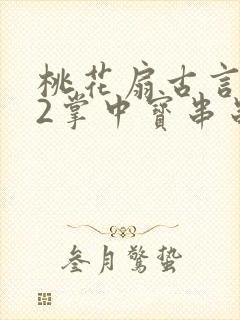 桃花扇古言
2掌中寶串
叁月驚蟄